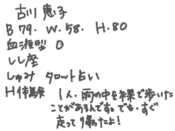 古川 恵子
B79. W.58. H.80
血液型 O
しし座
しゅみ タロット占い
H体験 1人、雨の中を裸で歩いた
ことがあるんです。でも、すぐ
走って帰ったよ!